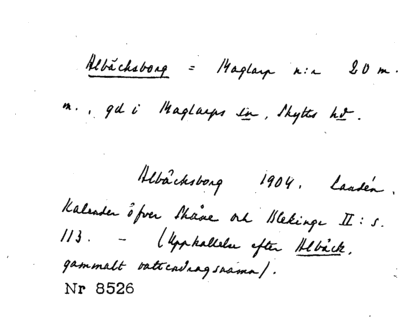 Albäcksborg = Maglarp n:r 20 m.
m., gd i Maglarps sn, Skytts hd.
Albäcksborg 1904. Laudén,
Kalender öfver Skåne och Blekinge II: s.
113. – (Uppkallelse efter Albäck,
gammalt vattendragsnamn).
Nr 8526